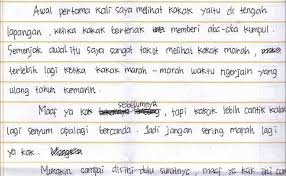 Awal pertama kali saya melihat kakak yaitu di tengah
lapangan, ketika kakak berteriak memberi aba-aba kumpul.
Semenjak awal itu saya sangat takut melihat kakak marah,
terlebih lagi ketika, kakak marah-marah waktu ngerjain yang
ulang tahun kemarin.
Maaf ya kak sebelumnya, tapi kakak lebih cantik kalau
lagi senyum apalagi bercanda. Jadi jangan sering marah lagi
ya kak.
Mungkin sampai disini dulu suratnya, maaf ya kak